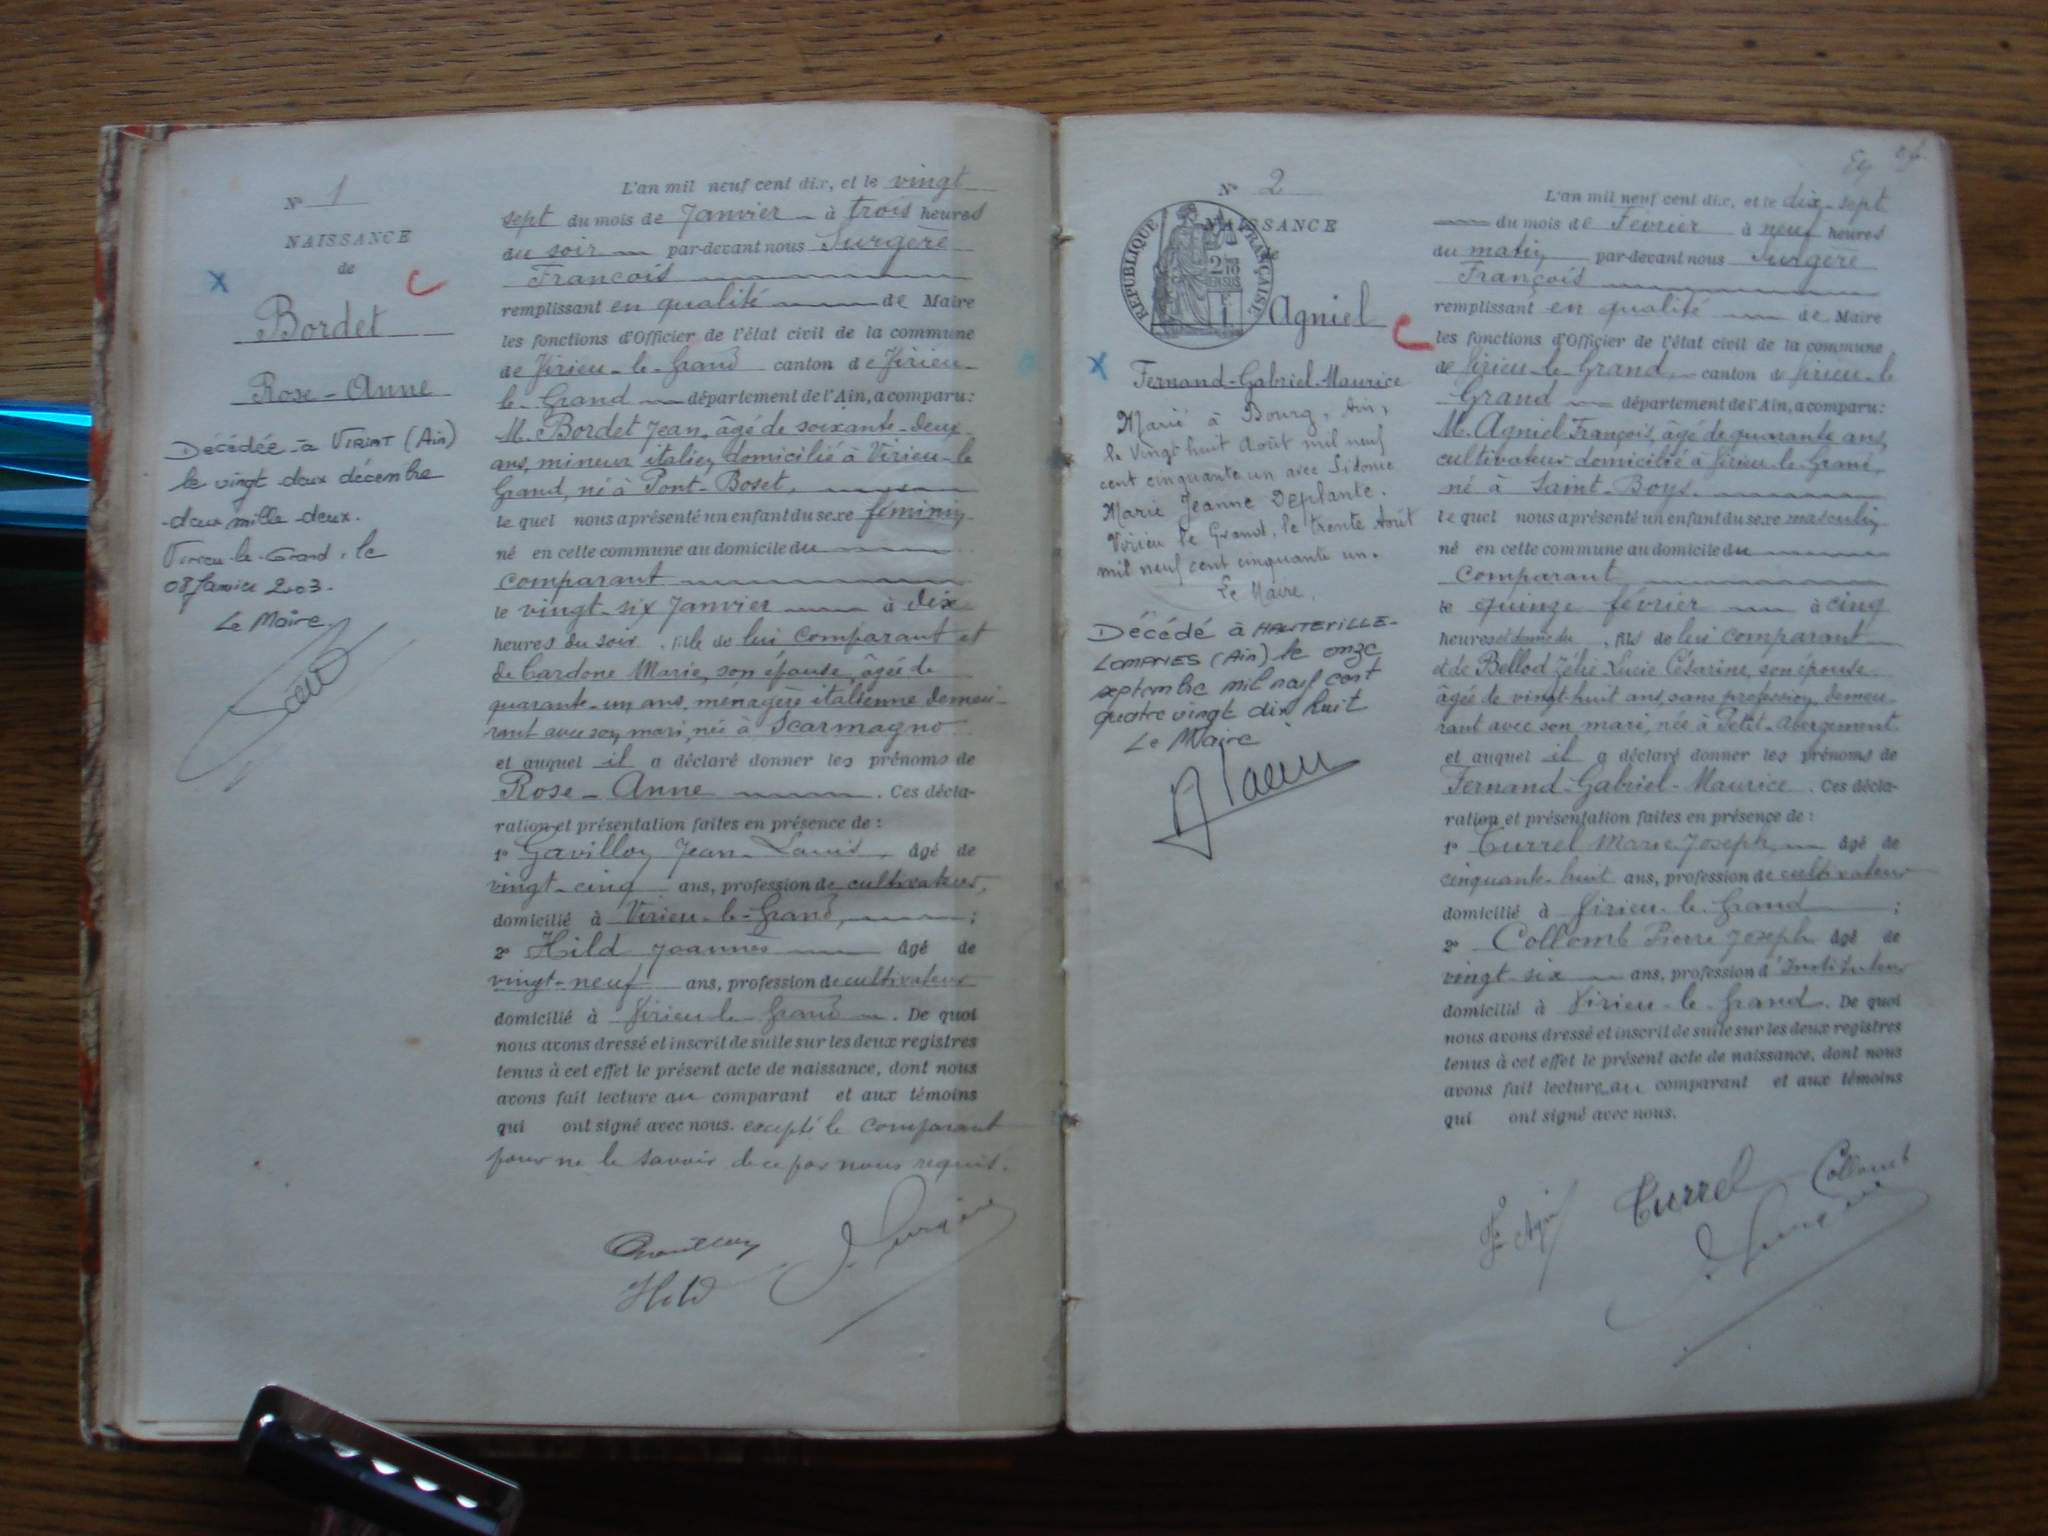 N° 1
NAISSANCE
de
Bordet
Rose-Anne
Décédée à VIRIAT (Ain)
le vingt deux décembre
deux mille deux.
Virieu-le-Grand, le
08 Janvier 2003.
Le Maire.
L'an mil neuf cent dix, et le vingt
sept du mois de Janvier à trois heures
du soir par-devant nous Surgère
François
remplissant en qualité de Maire
les fonctions d'Officier de l'état civil de la commune
de Virieu-le-Grand canton de Virieu-
le-Grand département de l'Ain, a comparu:
M. Bordet Jean, âgé de soixante-deux
ans, mineur italien, domicilié à Virieu-le
Grand, né à Pont-Boset,
le quel nous a présenté un enfant du sexe féminin
né en cette commune au domicile du
comparant
le vingt-six Janvier à dix
heures du soir, fille de lui comparant et
de Cardone Marie, son épouse, âgée de
quarante-un ans, ménagère italienne demeu-
rant avec son mari, née à Scarmagno
et auquel il a déclaré donner les prénoms de
Rose-Anne. Ces décla-
ration et présentation faites en présence de :
1° Gavillon Jean-Louis, âgé de
vingt-cinq ans, profession de cultivateur,
domicilié à Virieu-le-Grand, ;
2° Hild Joannès âgé de
vingt-neuf ans, profession de cultivateur
domicilié à Virieu-le-Grand. De quoi
nous avons dressé et inscrit de suite sur les deux registres
tenus à cet effet le présent acte de naissance, dont nous
avons fait lecture au comparant et aux témoins
qui ont signé avec nous. excepté le comparant
pour ne le savoir de ce par nous requis.
Hild
N° 2
NAISSANCE
de
RÉPUBLIQUE FRANÇAISE
Agniel
Fernand-Gabriel-Maurice
Marié à Bourg, Ain,
le vingt huit Août mil neuf
cent cinquante un avec Sidonie
Marie Jeanne Deplante.
Virieu le Grand, le trente Août
mil neuf cent cinquante un.
Le Maire,
Décédé à HAUTEVILLE-
LOMPNES (Ain) le onze
septembre mil neuf cent
quatre vingt dix huit
Le Maire
L'an mil neuf cent dix, et le dix-sept
du mois de Février à neuf heures
du matin par-devant nous Surgère
François
remplissant en qualité de Maire
les fonctions d'Officier de l'état civil de la commune
de Virieu-le-Grand canton de Virieu-le
Grand département de l'Ain, a comparu:
M. Agniel François, âgé de quarante ans,
cultivateur domicilié à Virieu-le-Grand,
né à Saint-Boys.
le quel nous a présenté un enfant du sexe masculin
né en cette commune au domicile du
comparant
le quinze février à cinq
heures du, fils de lui comparant
et de Bellod Zélie-Lucie Césarine, son épouse
âgée de vingt-huit ans, sans profession, demeu-
rant avec son mari, née à Petit-Abergement
et auquel il a déclaré donner les prénoms de
Fernand-Gabriel-Maurice. Ces décla-
ration et présentation faites en présence de :
1° Currel Marie Joseph, âgé de
cinquante-huit ans, profession de cultivateur
domicilié à Virieu-le-Grand ;
2° Collomb Pierre Joseph âgé de
vingt six ans, profession d'Instituteur
domicilié à Virieu-le-Grand. De quoi
nous avons dressé et inscrit de suite sur les deux registres
tenus à cet effet le présent acte de naissance, dont nous
avons fait lecture au comparant et aux témoins
qui ont signé avec nous.
Currel Collomb